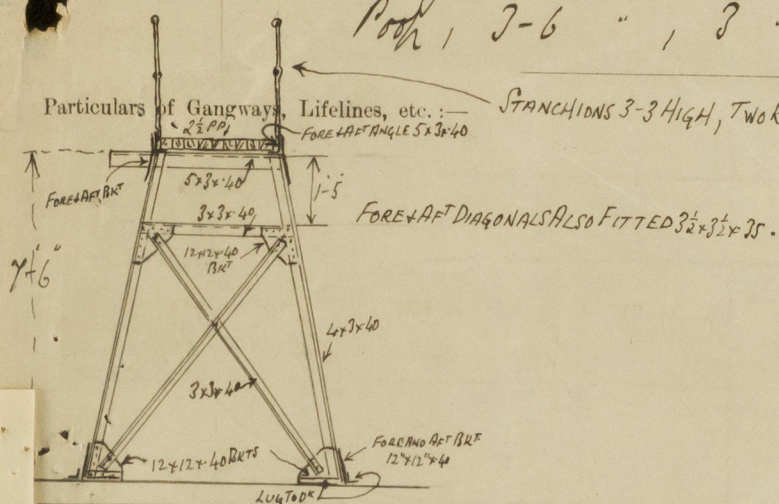 Poop, 3-6 " , 3
Particulars of Gangways, Lifelines, etc. :—
STANCHIONS 3-3 HIGH, TWO R
2½ PP,
FORE & AFT ANGLE 5×3×.40
FORE & AFT BKT
5×3×.40
1'-5"
3×3×.40
FORE & AFT DIAGONALS ALSO FITTED 3½×3½×.35.
12×12×.40
BKT
7'-6"
4×3×.40
3×3×.40
FORE AND AFT BKT
12"×12"×.40
12×12×.40 BKTS
LUG TO DK